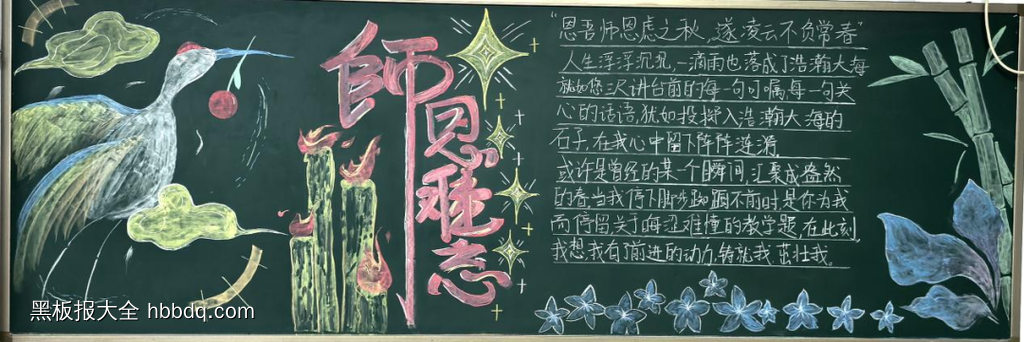 師恩难忘
"恩吾师恩虑之秋,遂凌云不负常春"
人生浮浮沉沉,一滴雨也落成了浩瀚大海
就如您次讲台前的每一句叮嘱,每一句关
心的话语,犹如投掷入浩瀚大海的
石子,在我心中留下阵阵涟漪
或许是曾经的某一个瞬间,汇聚成盎然
的春,当我停下脚步踟蹰不前时是你为我
而停留关于晦涩难懂的教学题,在此刻
我想,我有了前进的动力,铸就我茁壮我.
黑板报大全 hbbdq.com